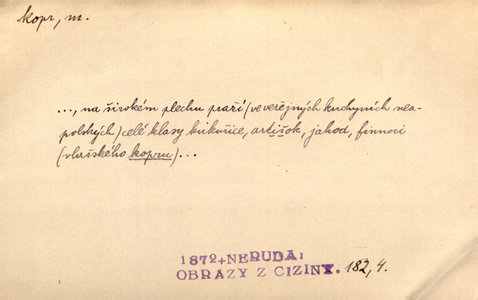 kopr, m.
..., na širokém plechu praží (ve veřejných kuchyních nea-
polských) celé klasy kukuřice, artišok, jahod, finnoci
(vlašského kopru)...
1872+NERUDA:
OBRAZY Z CIZINY. 182,4.